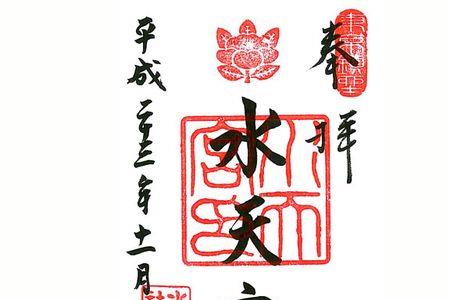 奉拝
水天
水天
宮印
平成二十三年十一月